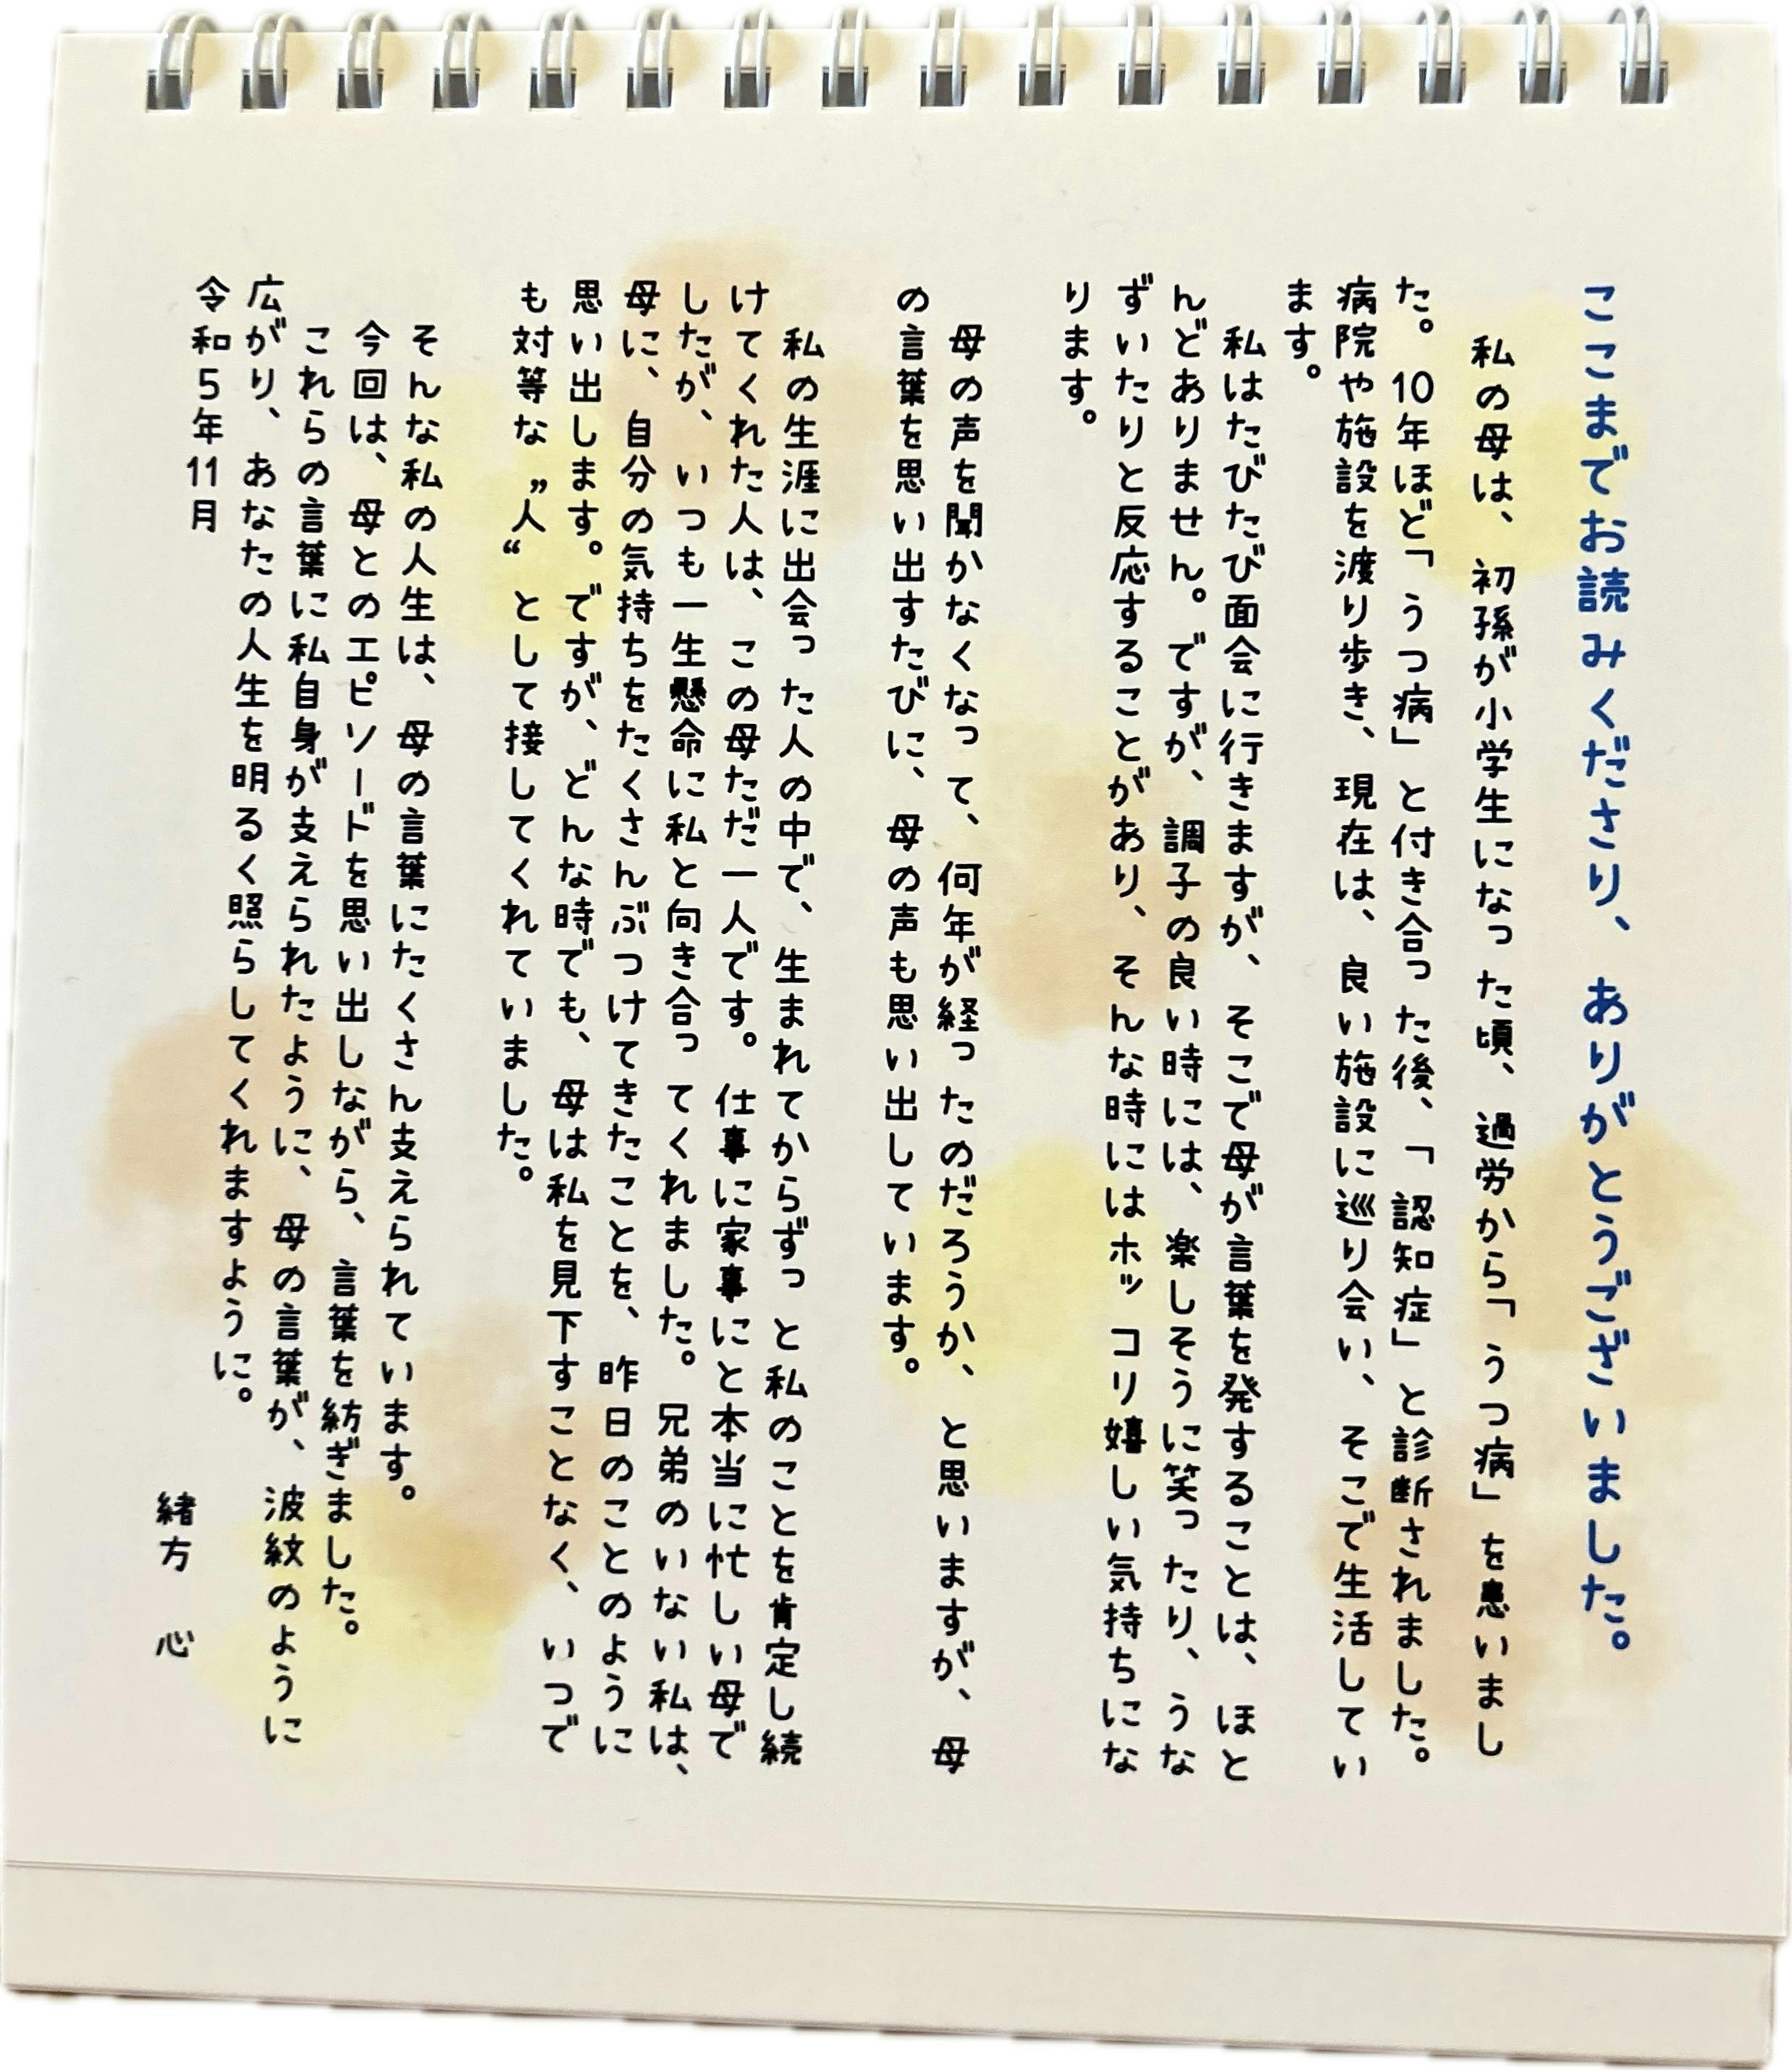 ここまでお読みくださり、ありがとうございました。
私の母は、初孫が小学生になった頃、過労から「うつ病」を患いまし
た。10年ほど「うつ病」と付き合った後、「認知症」と診断されました。
病院や施設を渡り歩き、現在は、良い施設に巡り会い、そこで生活してい
ます。
私はたびたび面会に行きますが、そこで母が言葉を発することは、ほと
んどありません。ですが、調子の良い時には、楽しそうに笑ったり、うな
ずいたりと反応することがあり、そんな時にはホッコリ嬉しい気持ちにな
ります。
母の声を聞かなくなって、何年が経ったのだろうか、と思いますが、母
の言葉を思い出すたびに、母の声も思い出しています。
私の生涯に出会った人の中で、生まれてからずっと私のことを肯定し続
けてくれた人は、この母ただ一人です。仕事に家事にと本当に忙しい母で
したが、いつも一生懸命に私と向き合ってくれました。兄弟のいない私は、
母に、自分の気持ちをたくさんぶつけてきたことを、昨日のことのように
思い出します。ですが、どんな時でも、母は私を見下すことなく、いつで
も対等な〝人〟として接してくれていました。
そんな私の人生は、母の言葉にたくさん支えられています。
今回は、母とのエピソードを思い出しながら、言葉を紡ぎました。
これらの言葉に私自身が支えられたように、母の言葉が、波紋のように
広がり、あなたの人生を明るく照らしてくれますように。
令和5年11月
緒方 心